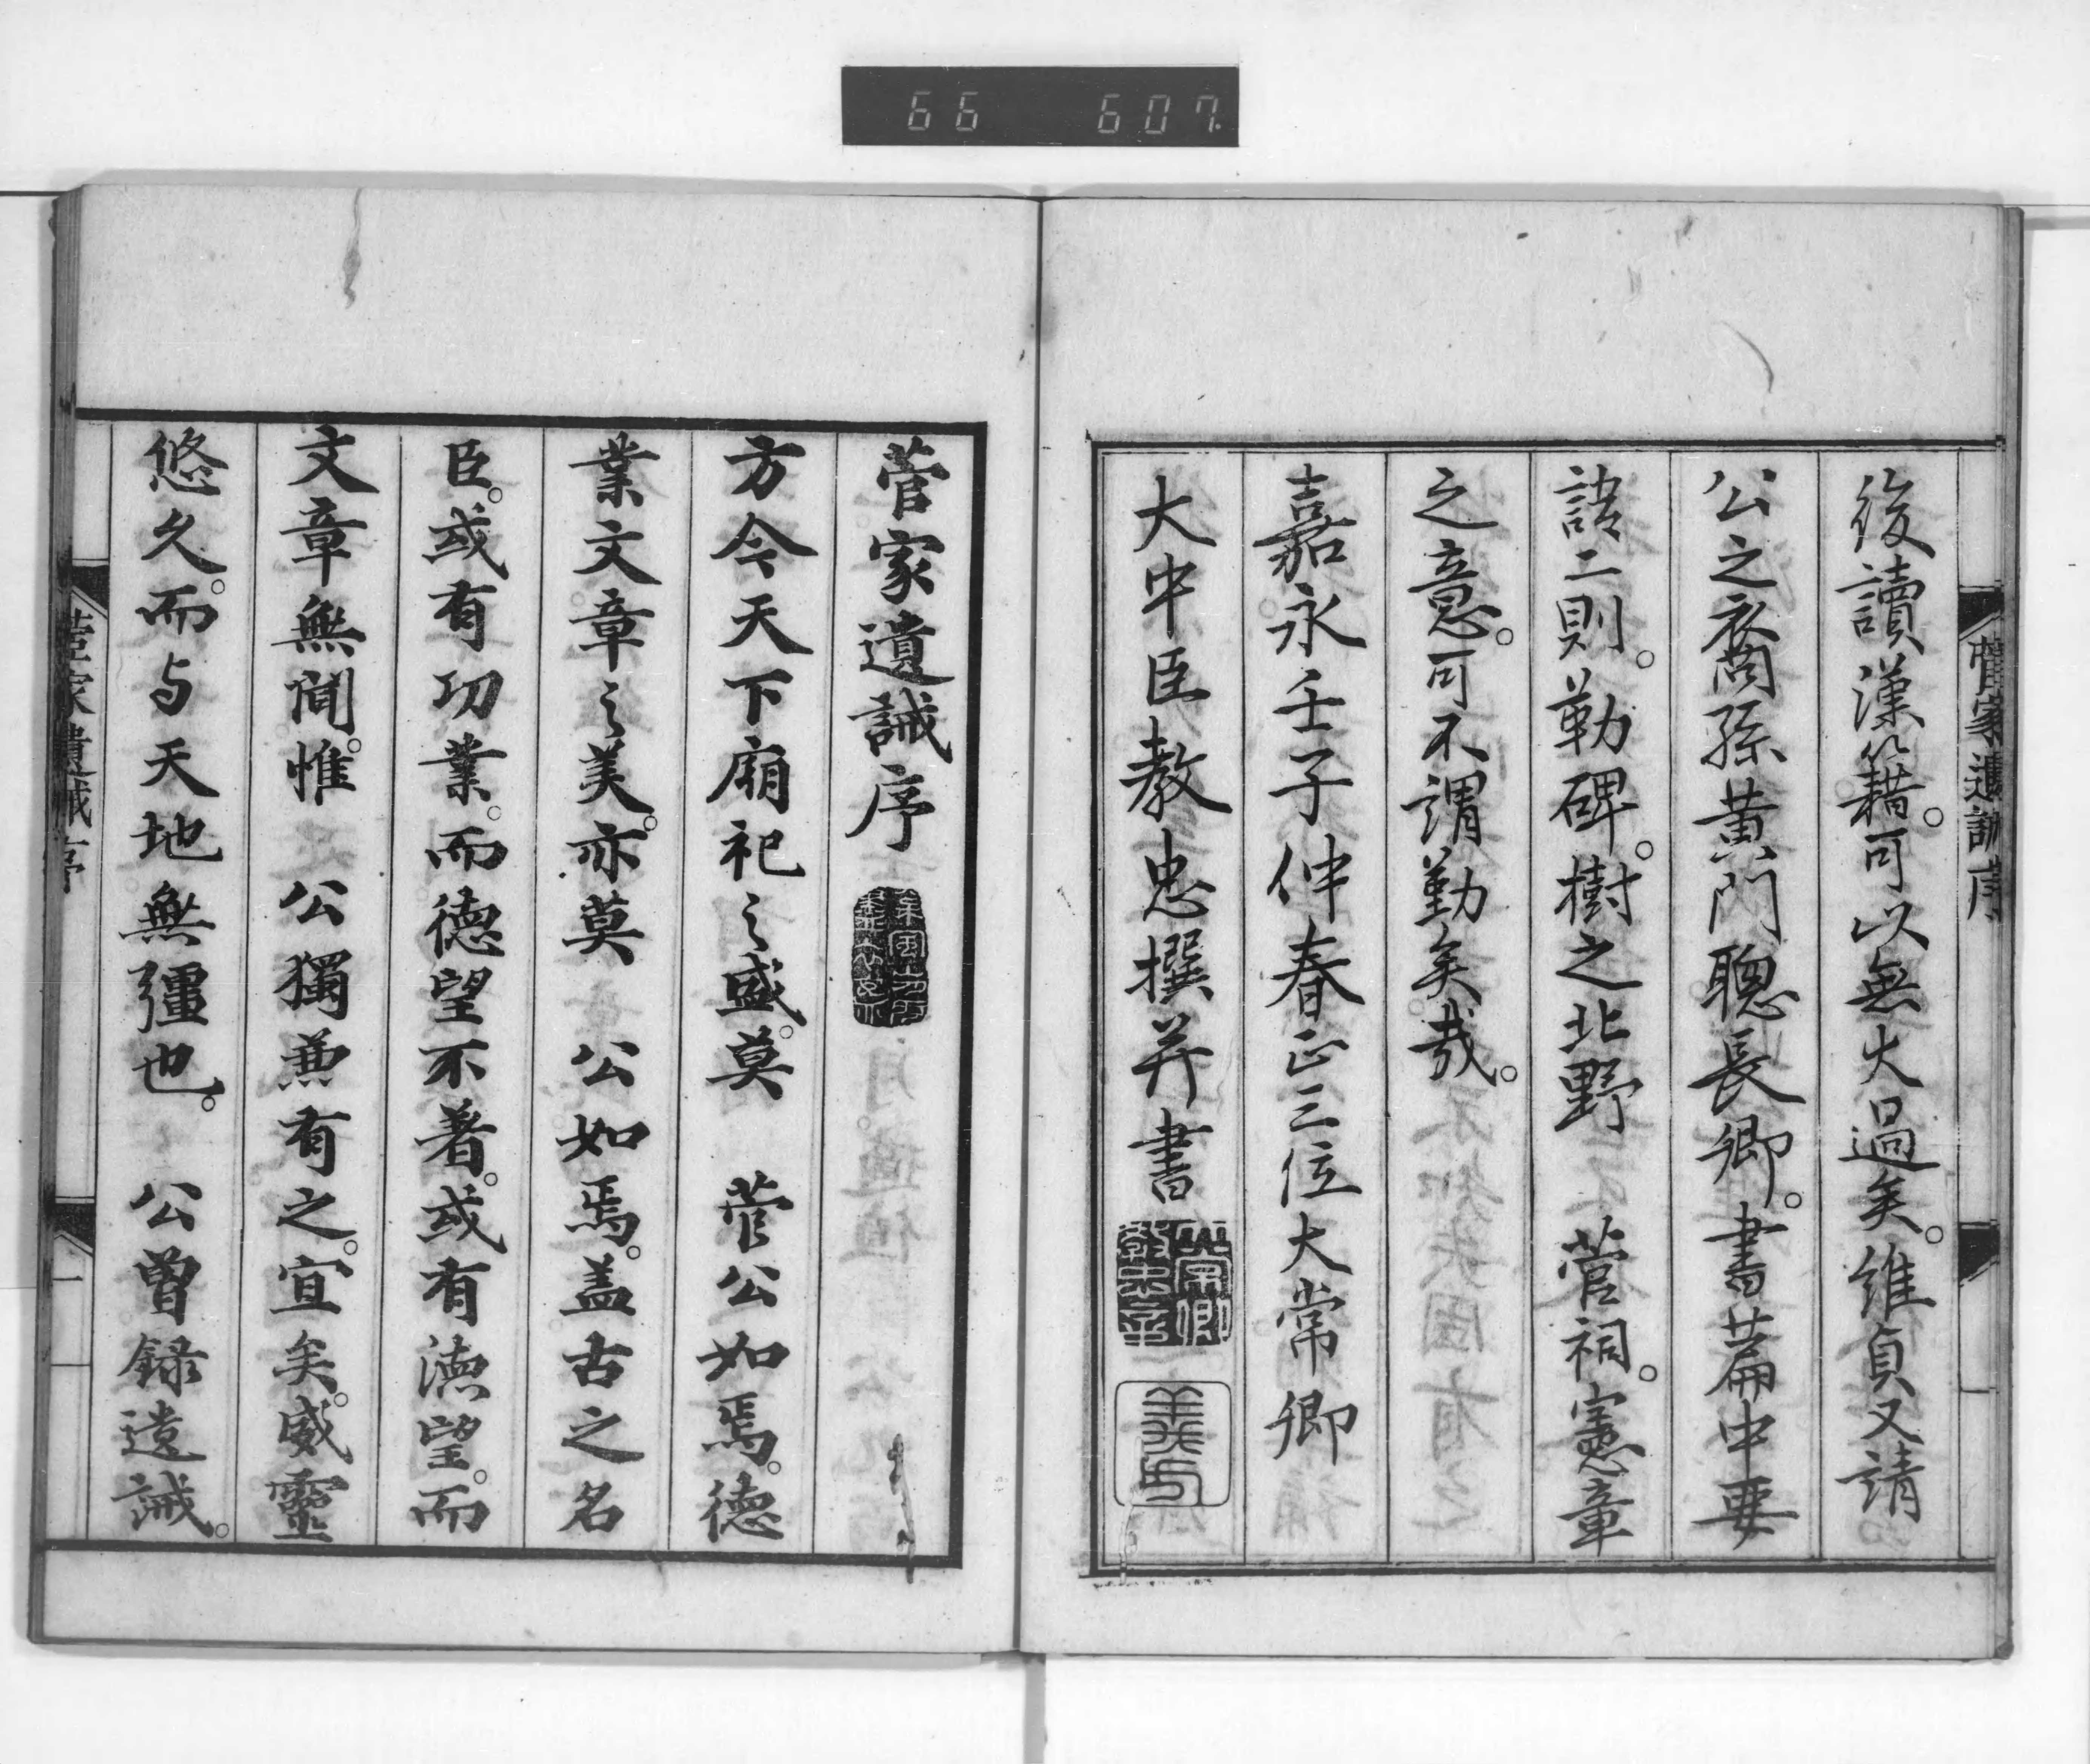 66 607.
菅家遺誡序
後讀漢籍。可以無大過矣。維貞又請
公之裔孫黄門聰長卿。書篇中要
語二則。勒碑。樹之北野 菅祠。憲章
之意。可不謂勤矣哉。
嘉永壬子仲春正三位大常卿
大中臣教忠撰并書
菅家遺誡序
方今天下廟祀之盛。莫 菅公如焉。德
業文章之美。亦莫 公如焉。盖古之名
臣。或有功業。而德望不著。或有德望。而
文章無聞。惟 公獨兼有之。宜矣。威靈
悠久。而与天地無彊也。 公曾録遺誡。
菅家遺誡序
一